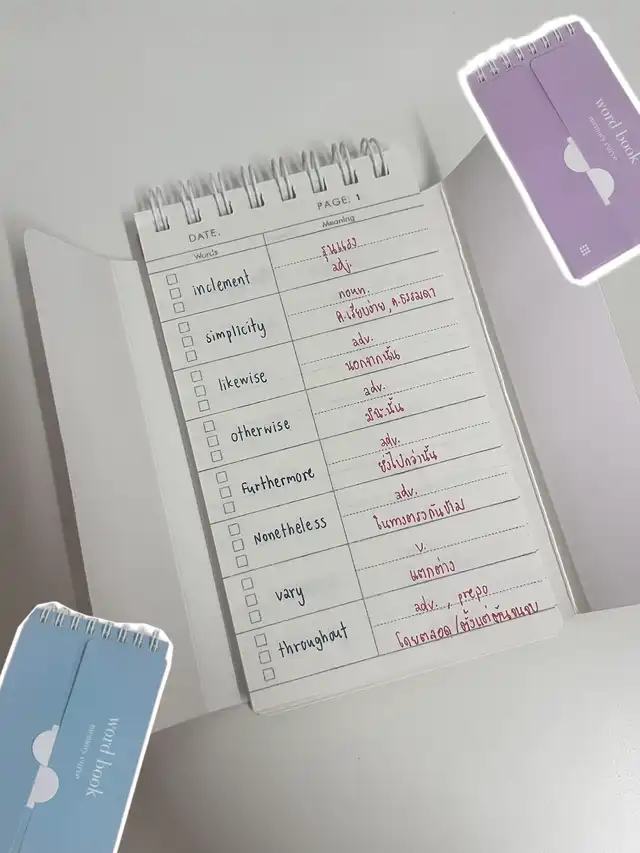 word book
memory curve
DATE.
PAGE. 1
Words
Meaning
inclement
รุนแรง
adj.
simplicity
noun.
ค.เรียบง่าย, ค.ธรรมดา
likewise
adv.
นอกจากนั้น
otherwise
adv.
มิฉะนั้น
Furthermore
adv.
ยิ่งไปกว่านั้น
Nonetheless
adv.
ในทางตรงกันข้าม
vary
v.
แตกต่าง
throughout
adv., prepo
โดยตลอด/ตั้งแต่ต้นจนจบ
word book
memory curve